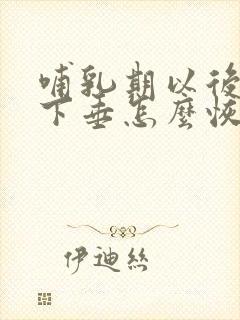 哺乳期以後
下垂怎麼恢
伊迪絲